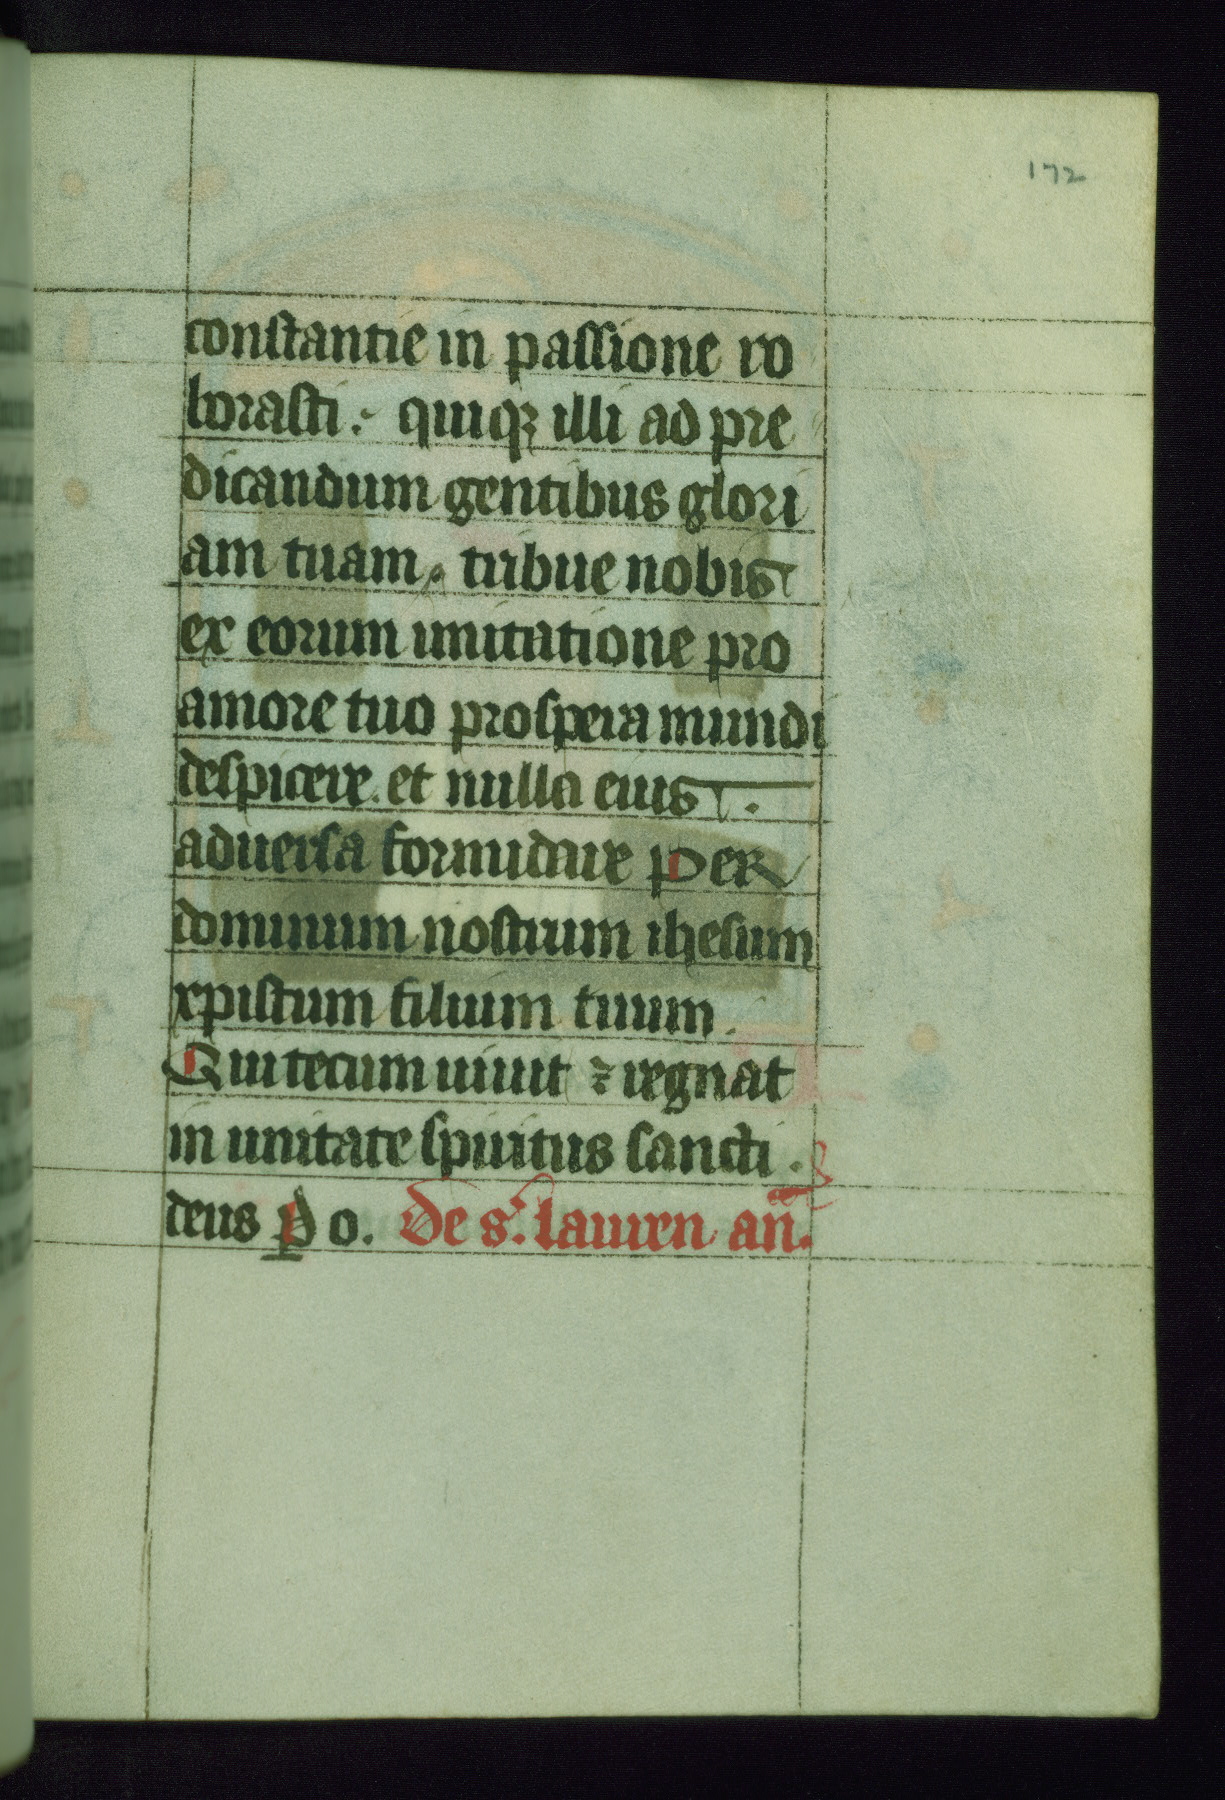 172
constantie in passione ro
borasti. quiqꝫ illi ad pre
dicandum gentibus glori
am tuam. tribue nobis
ex eorum imitatione pro
amore tuo prospera mundi
despicere. et nulla eius.
aduersa formidare Per
dominum nostrum ihesum
xpistum filium tuum.
Qui tecum uiuit ⁊ regnat
in unitate spiritus sancti.
deus P o. De s. lauren an̄.